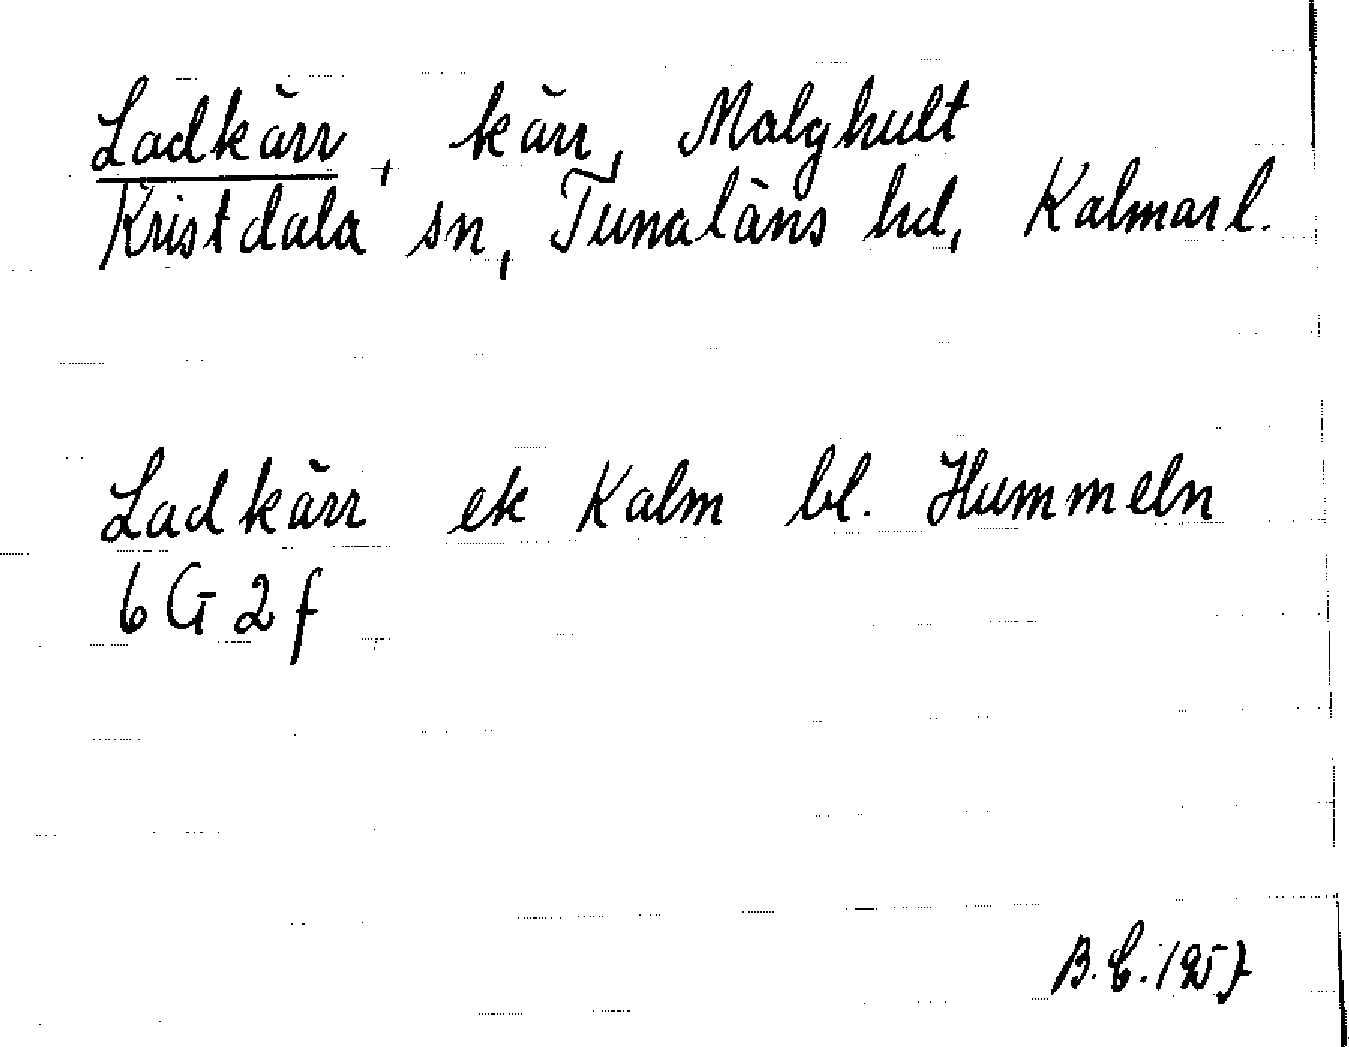 Ladkärr, kärr, Malghult
Kristdala sn, Tunaläns hd, Kalmar l.
Ladkärr ek Kalm bl. Hummeln
6G2f
B.E. 1957